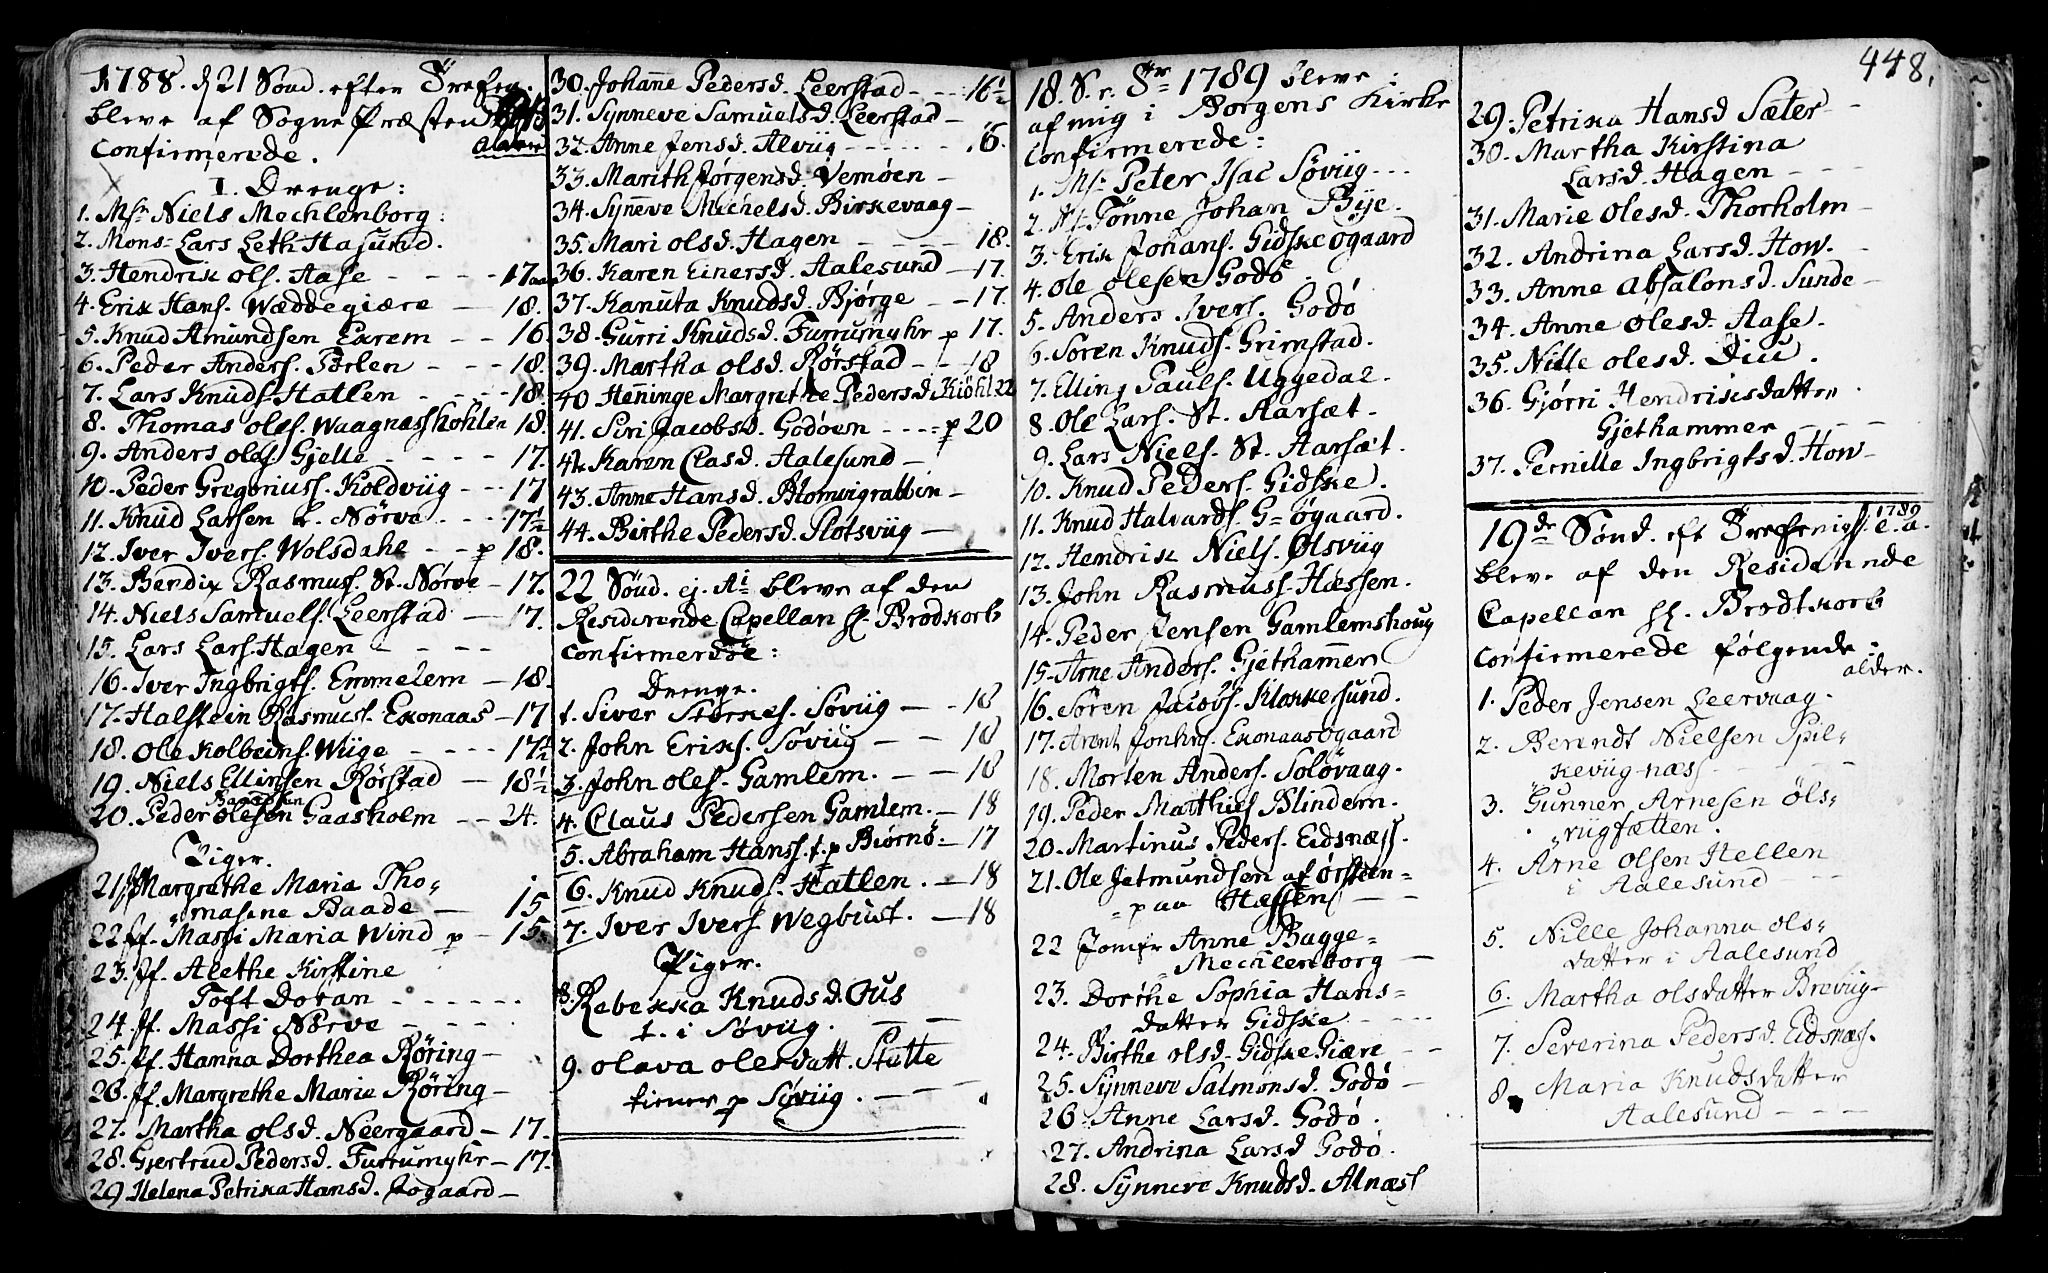 1788. d 21 Sønd. efter Trefog.
bleve af Sogne Præsten
Confirmerede. Alder
I. Drenge:
1. Msr Niels Mechlenborg:
2. Mons: Lars Leth Hasund.
3. Hendrik ols. Aase - - - - 17 aar
4. Erik Hans. Wæddegiære - 18.
5. Knud Amundsen Exrem - - 16
6. Peder Anders. Pørlen - - - 18.
7. Lars Knuds. Hatlen - - - - 18.
8. Thomas oles. Waagnæsskohlen 18.
9. Anders oles. Gjelle - - - - - 17.
10. Peder Gregoriuss. Koldviig - - - 17
11. Knud Larsen L. Nørve - - - 17½
12. Iver Ivers. Wolsdahl - - p 18.
13. Bendix Rasmuss. St. Nørve - 17.
14. Niels Samuels. Leerstad - - 17.
15. Lars Lars. Hagen - - - -
16. Iver Ingbrigts. Emmelem - 18.
17. Halstein Rasmuss. Exonaas - 17
18. Ole Kolbeins. Wiige - - - - 17½
19. Niels Ellingsen Rørstad - 18½
20. Peder olesen Gaasholm - - 24.
Piger.
21. Jf. Margrethe Maria Tho„
„masine Baade - 15
22. Jf. Massi Maria Wind p - 15.
23. Jf. Alethe Kirstine
Toft Doran - - - - - -
24. Jf. Massi Nørve - - - -
25. Jf. Hanna Dorthea Røring -
26. Jf. Margrethe Marie Røring -
27. Martha olsd. Neergaard - 17.
28. Gjertrud Pedersd. Furrumyhr - 17.
29 Helena Petrika Hansd. Jogaard -
30. Johanne Pedersd. Leerstad - - - 16½
31. Synneve Samuelsd. Leerstad -
32. Anne Jensd. Alviig - - - - - - 16.
33. Marith Jørgensd. Vemøen -
34. Synneve Michelsd. Birkevaag -
35. Mari olsd. Hagen - - - - - 18.
36. Karen Einersd. Aalesund - 17.
37. Kanuta Knudsd. Bjørge - - 17.
38. Gurri Knudsd. Furrumyhr p 17.
39. Martha olsd. Rørstad - - 18
40 Henninge Margrethe Pedersd. Kiöhl 22
41. Siri Jacobsd. Godøen - - - - p 20
42. Karen Clasd. Aalesund -
43. Anne Hansd. Blomvigrabben -
44. Birthe Pedersd. Slotsviig -
22 Sønd. ej. Ai bleve af den
Residerende Capellan Hr. Brodkorb
Confirmerede:
Drenge.
1. Siver Storkes. Søviig - - 18
2. John Eriks. Søviig - - 18
3. John oles. Gamlem. - - 18
4. Claus Pedersen Gamlem. - 18
5. Abraham Hanss. t. p Biørnø - 17
6. Knud Knuds. Hatlen. - 18
7. Iver Ivers Wegbust. - 18
Piger.
8. Rebekka Knudsd. Huus
t. i Søviig. - -
9. olava olesdatt. Stette
tiener p Søviig. - - -
18. S. r. Str 1789 bleve:
af mig i Borgens Kirke
Confirmerede:
1. Msr Peter Isac Søviig - - -
2. Mr. Tønne Johan Bye.
3. Erik Johans. Gidskeøgaard
4. Ole olesen Godø
5. Anders Ivers. Godø
6. Søren Knuds. Grimstad.
7. Elling Pauls. Uggedal.
8. Ole Lars. St. Aarsæt.
9. Lars Niels. St. Aarsæt.
10. Knud Peders. Gidske.
11. Knud Halvards. G= øgaard.
12. Hendrik Niels. Ølsviig
13. John Rasmuss. Hæssen.
14. Peder Jensen Gamlemshoug
15. Arne Anders. Gjethammer
16. Søren Jacobs. Klokkersund.
17. Arent Jonhrs. Exonaasøgaard
18. Morten Anders. Soløvaag.
19. Peder Matthies Blindem.
20. Martinus Peders. Eidsnæss.
21. Ole Jetmundsen af ørsteen=
= paa Hæssen - -
22 Jomfr Anne Bugge=
Mechlenborg -
23. Dorthe Sophia Hans=
datter Gidske - - - -
24. Birthe olsd. Gidske Giære - -
25. Synneve Salmonsd. Godø -
26. Anne Larsd. Godø.
27. Andrina Larsd Godø.
28. Synneve Knudsd. Alnæss
448.
29. Petrika Hansd Sæter -
30. Martha Kirstina
Larsd. Hagen - - -
31. Marie olesd. Thorholm -
32. Andrina Larsd. How. -
33. Anne Absalonsd. Sunde -
34. Anne olesd. Aase.
35. Nille olesd. Diu.
36. Gjørri Hendriksdatter
Gjethammer - - - -
37. Pernille Ingbrigtsd. How -
19de Sønd. eft Trefenigh. e. a. 1789
bleve af den Residerende
Capellan Hr. Brodtkorb
Confirmerede følgende:
alder.
1. Peder Jensen Leervaag.
2. Berendt Nielsen Spil„
keviignæs - - -
3. Gunner Arnesen øls„
„viigfætten.
4. Arne olsen Hellen
i Aalesund - - -
5. Nille Johanna ols„
datter i Aalesund
6. Martha olsdatter Breviig -
7. Severina Pedersd. Eidsnæs.
8. Maria Knudsdatter
Aalesund - - - -